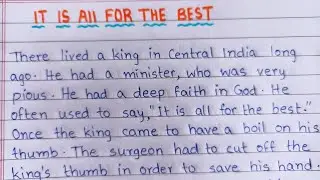 IT IS All FOR THE BEST
There lived a king in Central India long
ago. He had a minister, who was very
pious. He had a deep faith in God. He
often used to say,"It is all for the best."
Once the king came to have a boil on his
thumb. The surgeon had to cut off the
king's thumb in order to save his hand.